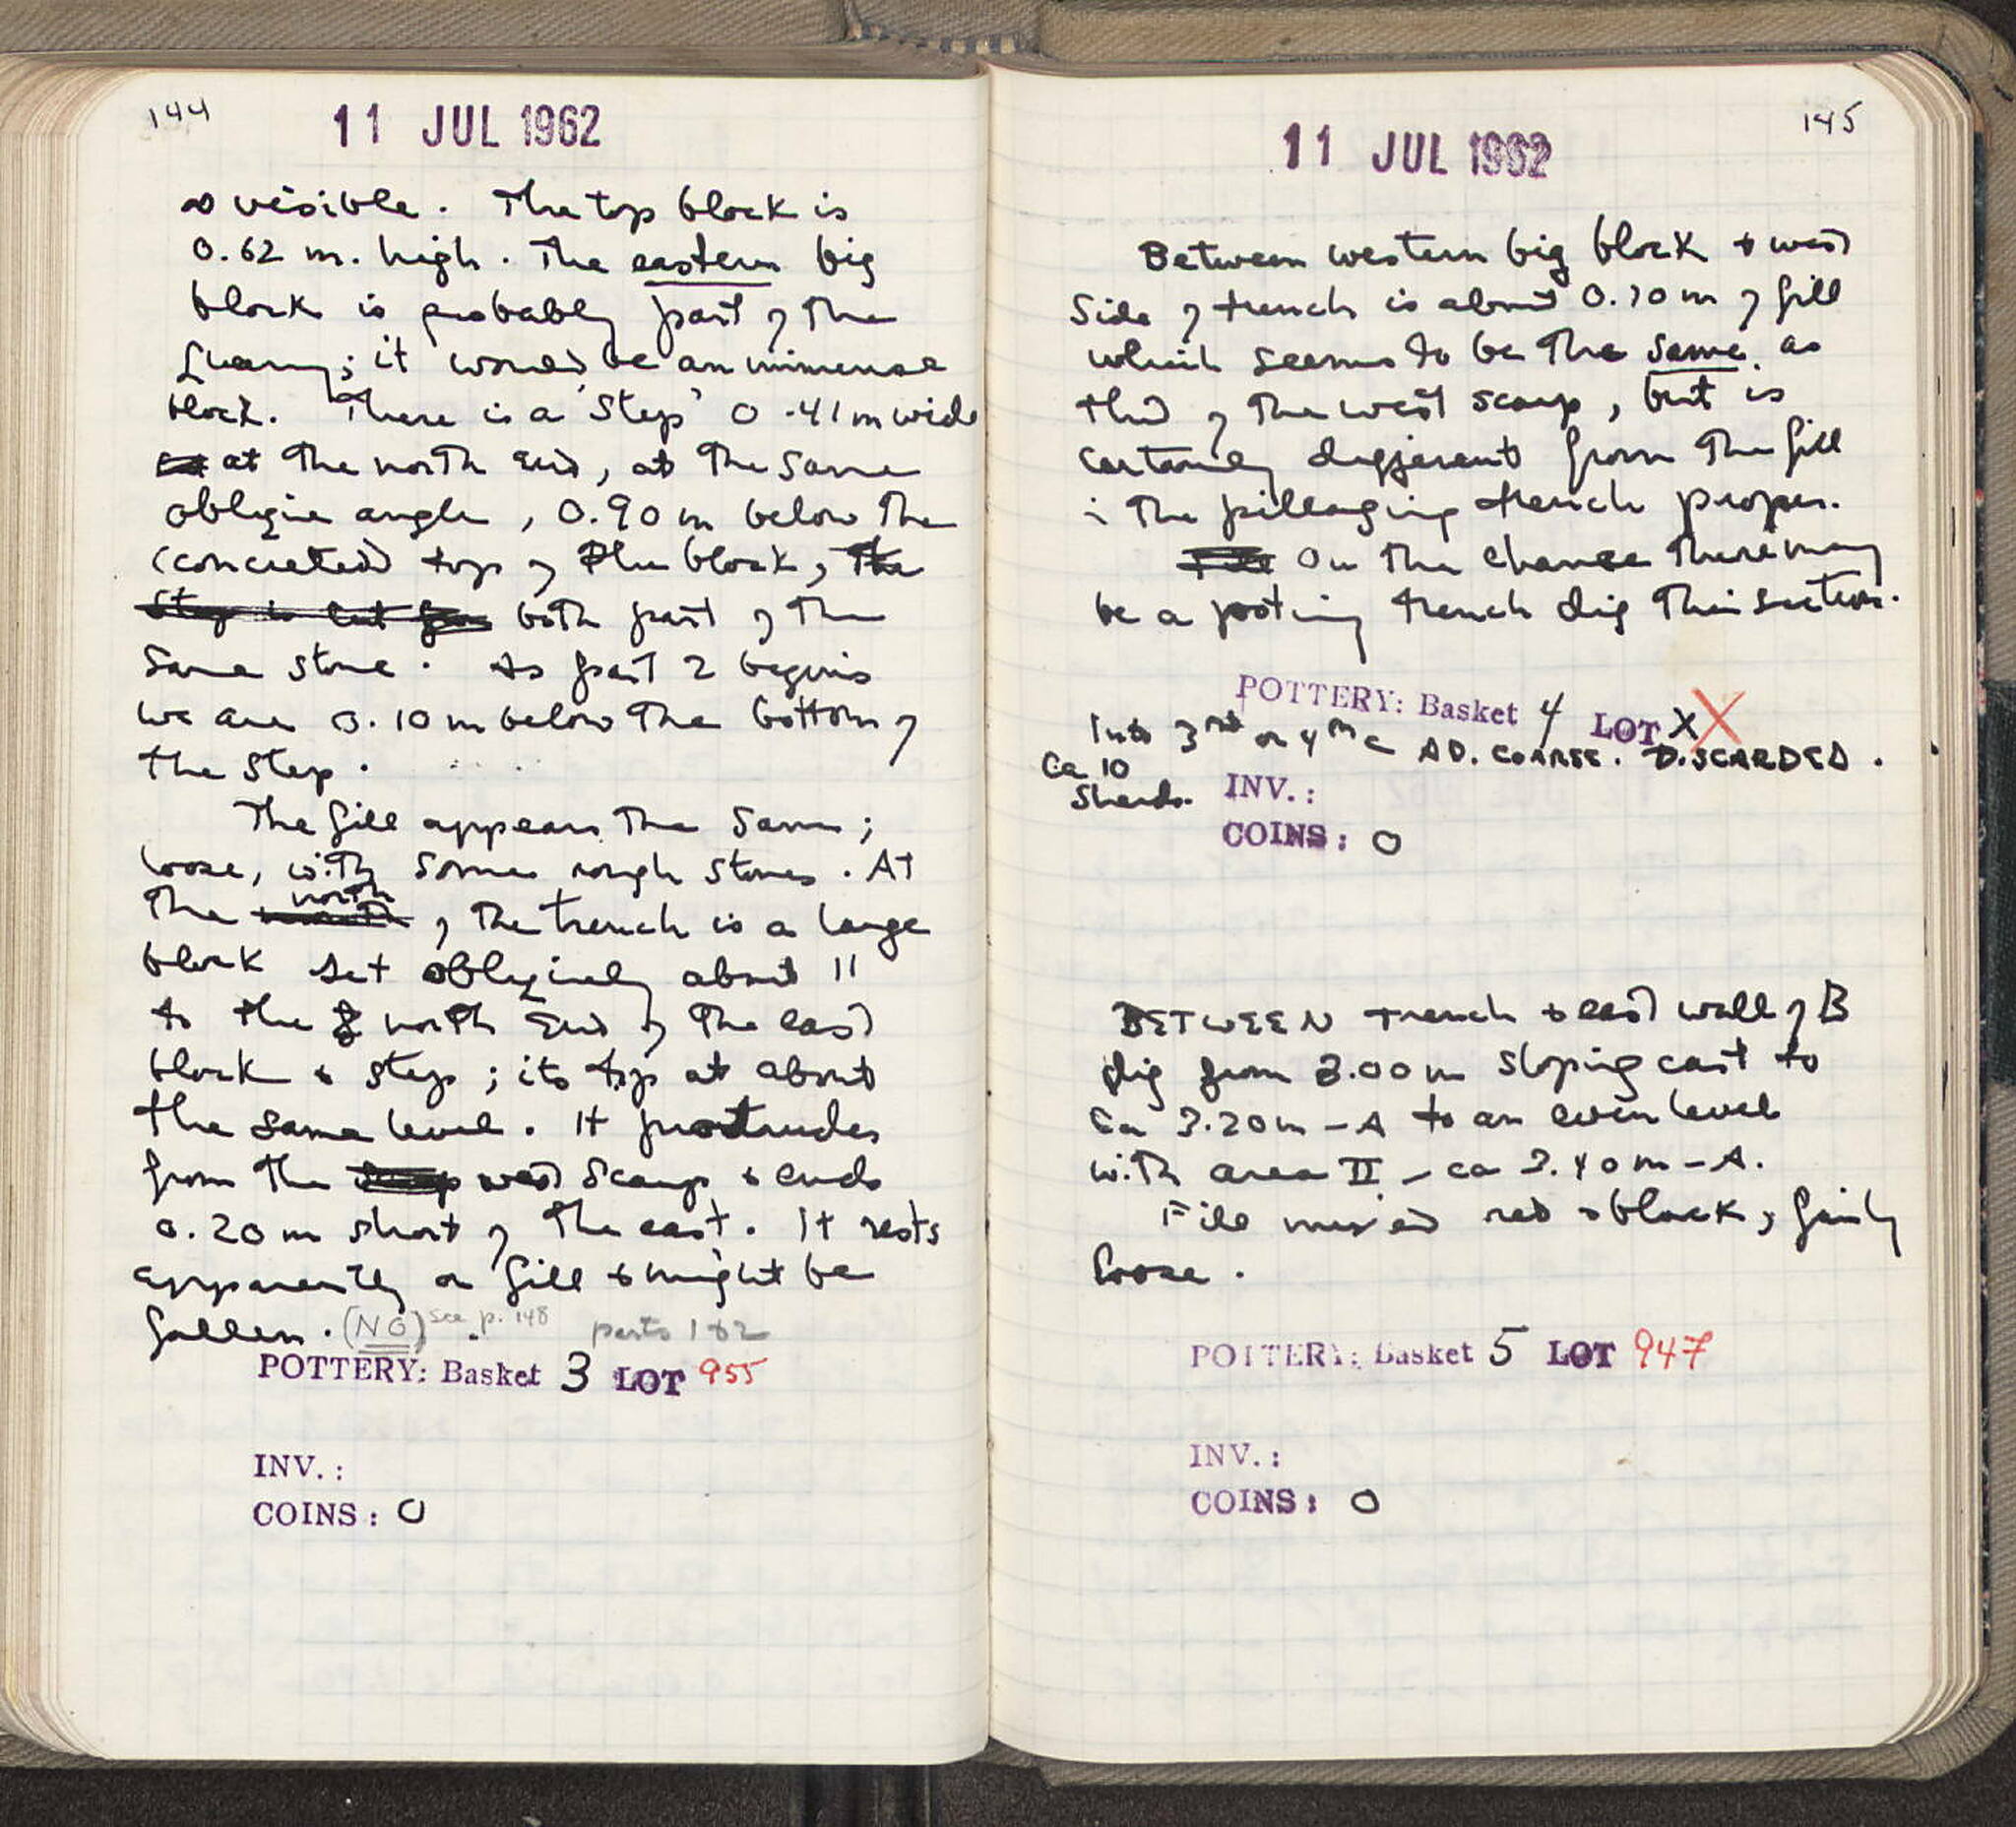 144
11 JUL 1962
is visible. The top block is
0.62 m. high. The eastern big
block is probably part of the
quarry; it would be an immense
block. There is a 'step' 0.41 m wide
at the north end, at the same
oblique angle, 0.90 m below the
(concreted) top of the block, the
both part of the
same stone. As part 2 begins
we are 0.10 m below the bottom of
the step.
The fill appears the same;
loose, with some rough stones. At
the north of the trench is a large
block set obliquely about 11
to the north end of the east
block & step; its top at about
the same level. It protrudes
from the west scarp & ends
0.20 m short of the east. It rests
apparently on fill & might be
fallen. (NO) see p. 148 parts 1 & 2
POTTERY: Basket 3 LOT 955
INV.:
COINS: 0
145
11 JUL 1962
Between western big block & west
side of trench is about 0.70 m of fill
which seems to be the same as
that of the west scarp, but is
certainly different from the fill
i the pillaging trench proper.
On the chance there may
be a footing trench dig this section.
POTTERY: Basket 4 LOT X X
Into 3rd or 4th c AD. COARSE. DISCARDED.
Ca 10
sherds.
INV.:
COINS: 0
BETWEEN trench & east wall of B
dig from 3.00 m sloping east to
Ca 3.20 m - A to an even level
with area II - ca 3.40 m - A.
Fill mixed red & black, fairly
loose.
POTTERY: Basket 5 LOT 947
INV.:
COINS: 0